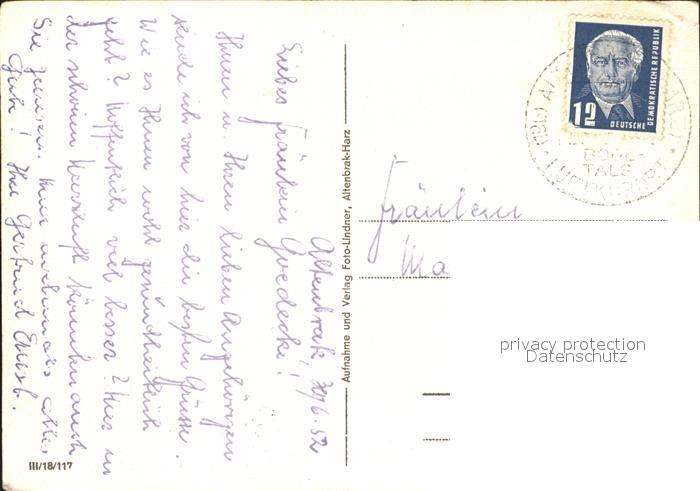 Altenbrak, 30/6.52
Liebes Fräulein Goedecke!
Ihnen u. Ihren lieben Angehörigen
sende ich von hier die besten Grüsse.
Wie es Ihnen wohl gesundheitlich
geht? Hoffentlich viel besser? Hier in
der schönen Harzluft könnten auch
Sie genesen. Ihnen nochmals alles
Gute! Ihre Gertrud
Aufnahme und Verlag Foto-Lindner, Altenbrak-Harz
III/18/117
12
DEUTSCHE
DEMOKRATISCHE REPUBLIK
BODE-
TALS
LUFTKURORT
Fräulein
Ma
privacy protection
Datenschutz